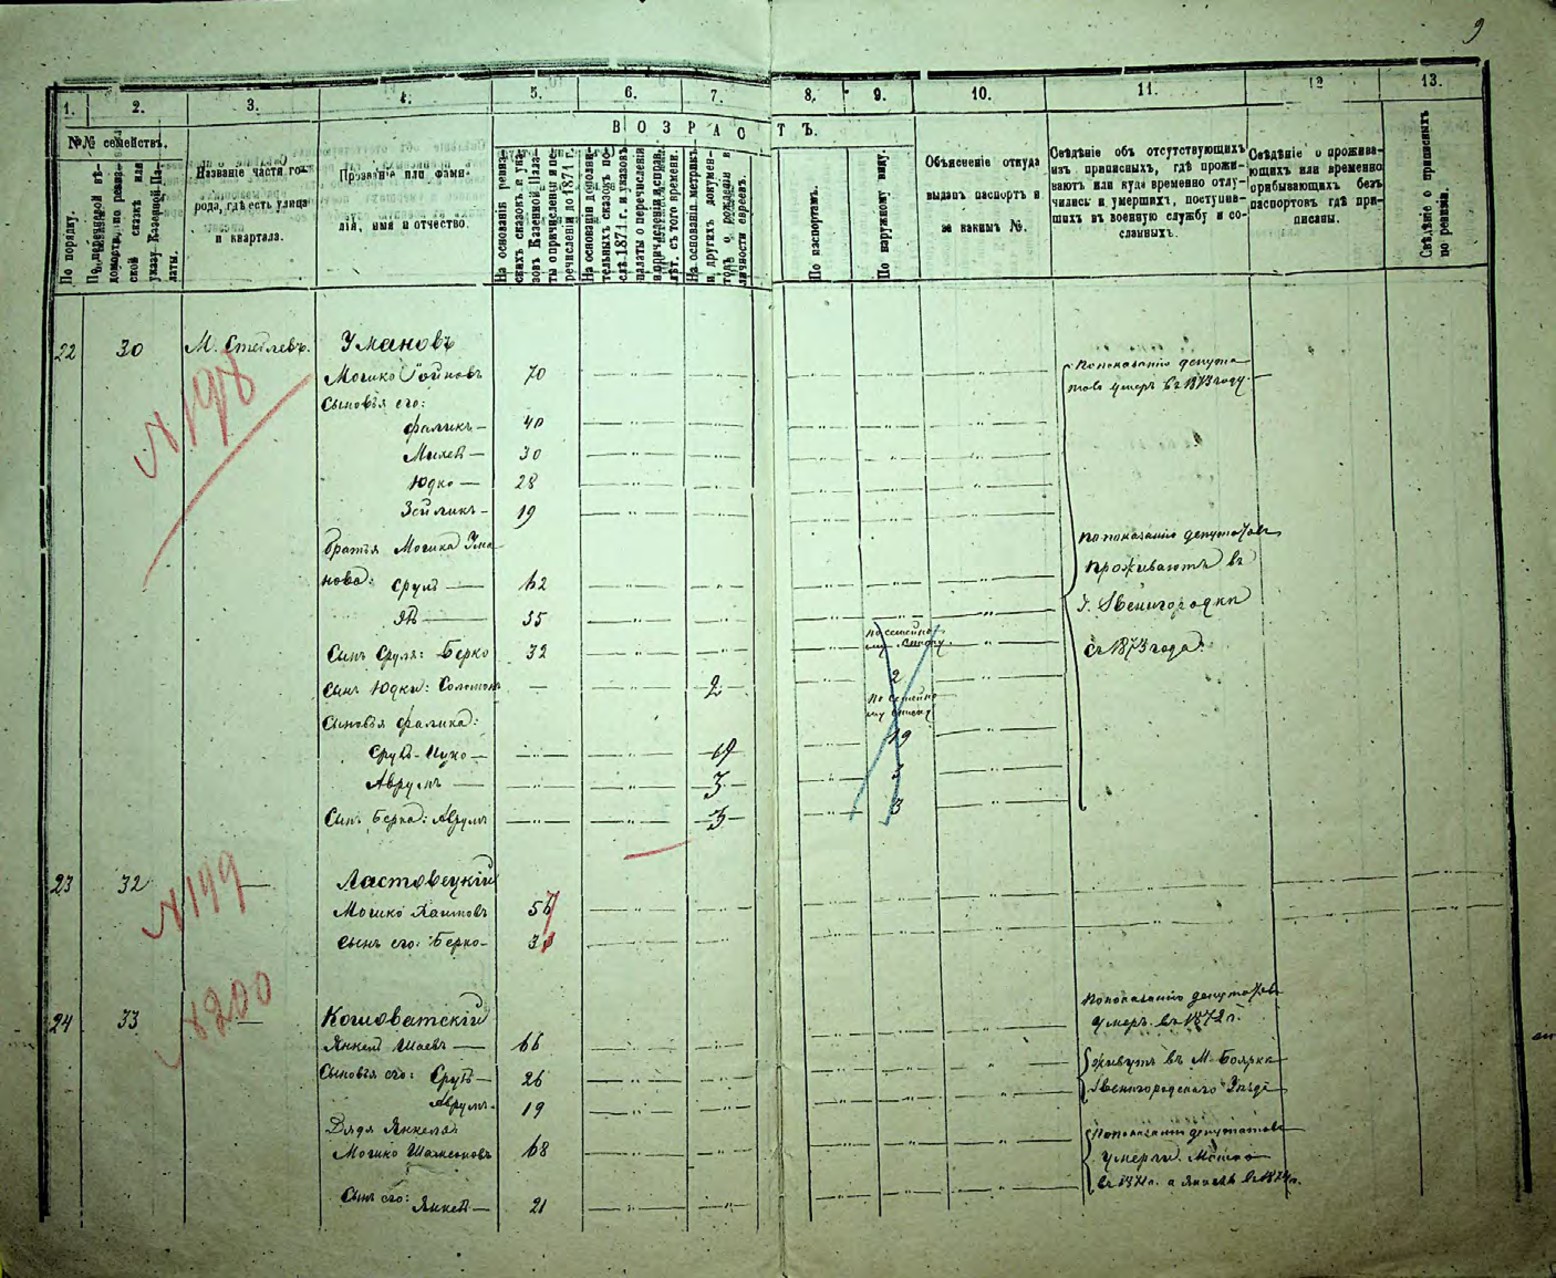 9
1. 2. 3. 4. 5. 6. 7. 8. 9. 10. 11. 12 13.
№№ семействъ.
По порядку.
ской сказкѣ или
указу Казенной Па-
латы.
Названіе части го-
рода, гдѣ есть улица
и квартала.
Прозваніе или фами-
лія, имя и отчество.
ВОЗРАСТЪ.
На основаніи ревиз-
скихъ сказокъ и ука-
зовъ Казенной Пала-
ты о причисленіи и пе-
речисленіи до 1871 г.
На основаніи дополни-
тельныхъ сказокъ по-
слѣ 1871 г. и указовъ
палаты о перечисленіи
На основаніи метрикъ
и другихъ докумен-
товъ о рожденіи и
личности евреевъ.
По паспортамъ.
По наружному виду.
Объясненіе откуда
выданъ паспортъ и
за какимъ №.
Свѣдѣніе объ отсутствующихъ
изъ приписныхъ, гдѣ прожи-
ваютъ или куда временно отлу-
чились и умершихъ, поступив-
шихъ въ военную службу и со-
сланныхъ.
Свѣдѣніе о прожива-
ющихъ или временно
прибывающихъ безъ
паспортовъ гдѣ при-
писаны.
Свѣдѣніе о приписныхъ
по ревизіи.
22 30 Умановъ
№198
Мошко 70
По показанію депута
товъ умеръ въ 1873 году.
Сыновья его:
Фаликъ 40
30
Юдко 28
Зейликъ 19
братья Мошка Ума
нова: Сруль 62
55
По показанію депутатовъ
проживаютъ въ
г. Звенигородкѣ
съ 1873 года
Сынъ Сруля: Берко 32
По семейно-
му списку.
Сынъ Юдки: Соломонъ — 2 2
По семейно-
му списку
Сыновья Фалика:
Сруль-Ицко 19 19
Аврумъ 3
Сынъ Берка: Аврумъ 3 3
23 32 Ластовецкій
№199
Мошко 56
Сынъ его: Берко
24 33 Кошоватскій
№200
По показанію депутатовъ
умеръ въ 1872 г.
Янкель Шаевъ 66
Сыновья его: Сруль 26
Аврумъ 19
живутъ въ М. Боярка
Звенигородскаго Уѣзда
Дядя Янкеля
Мошко 68
По показанію депутатовъ
умерли. Мошко
въ 1871 г. а Янкель въ 1874 г.
Сынъ его: Янкель 21